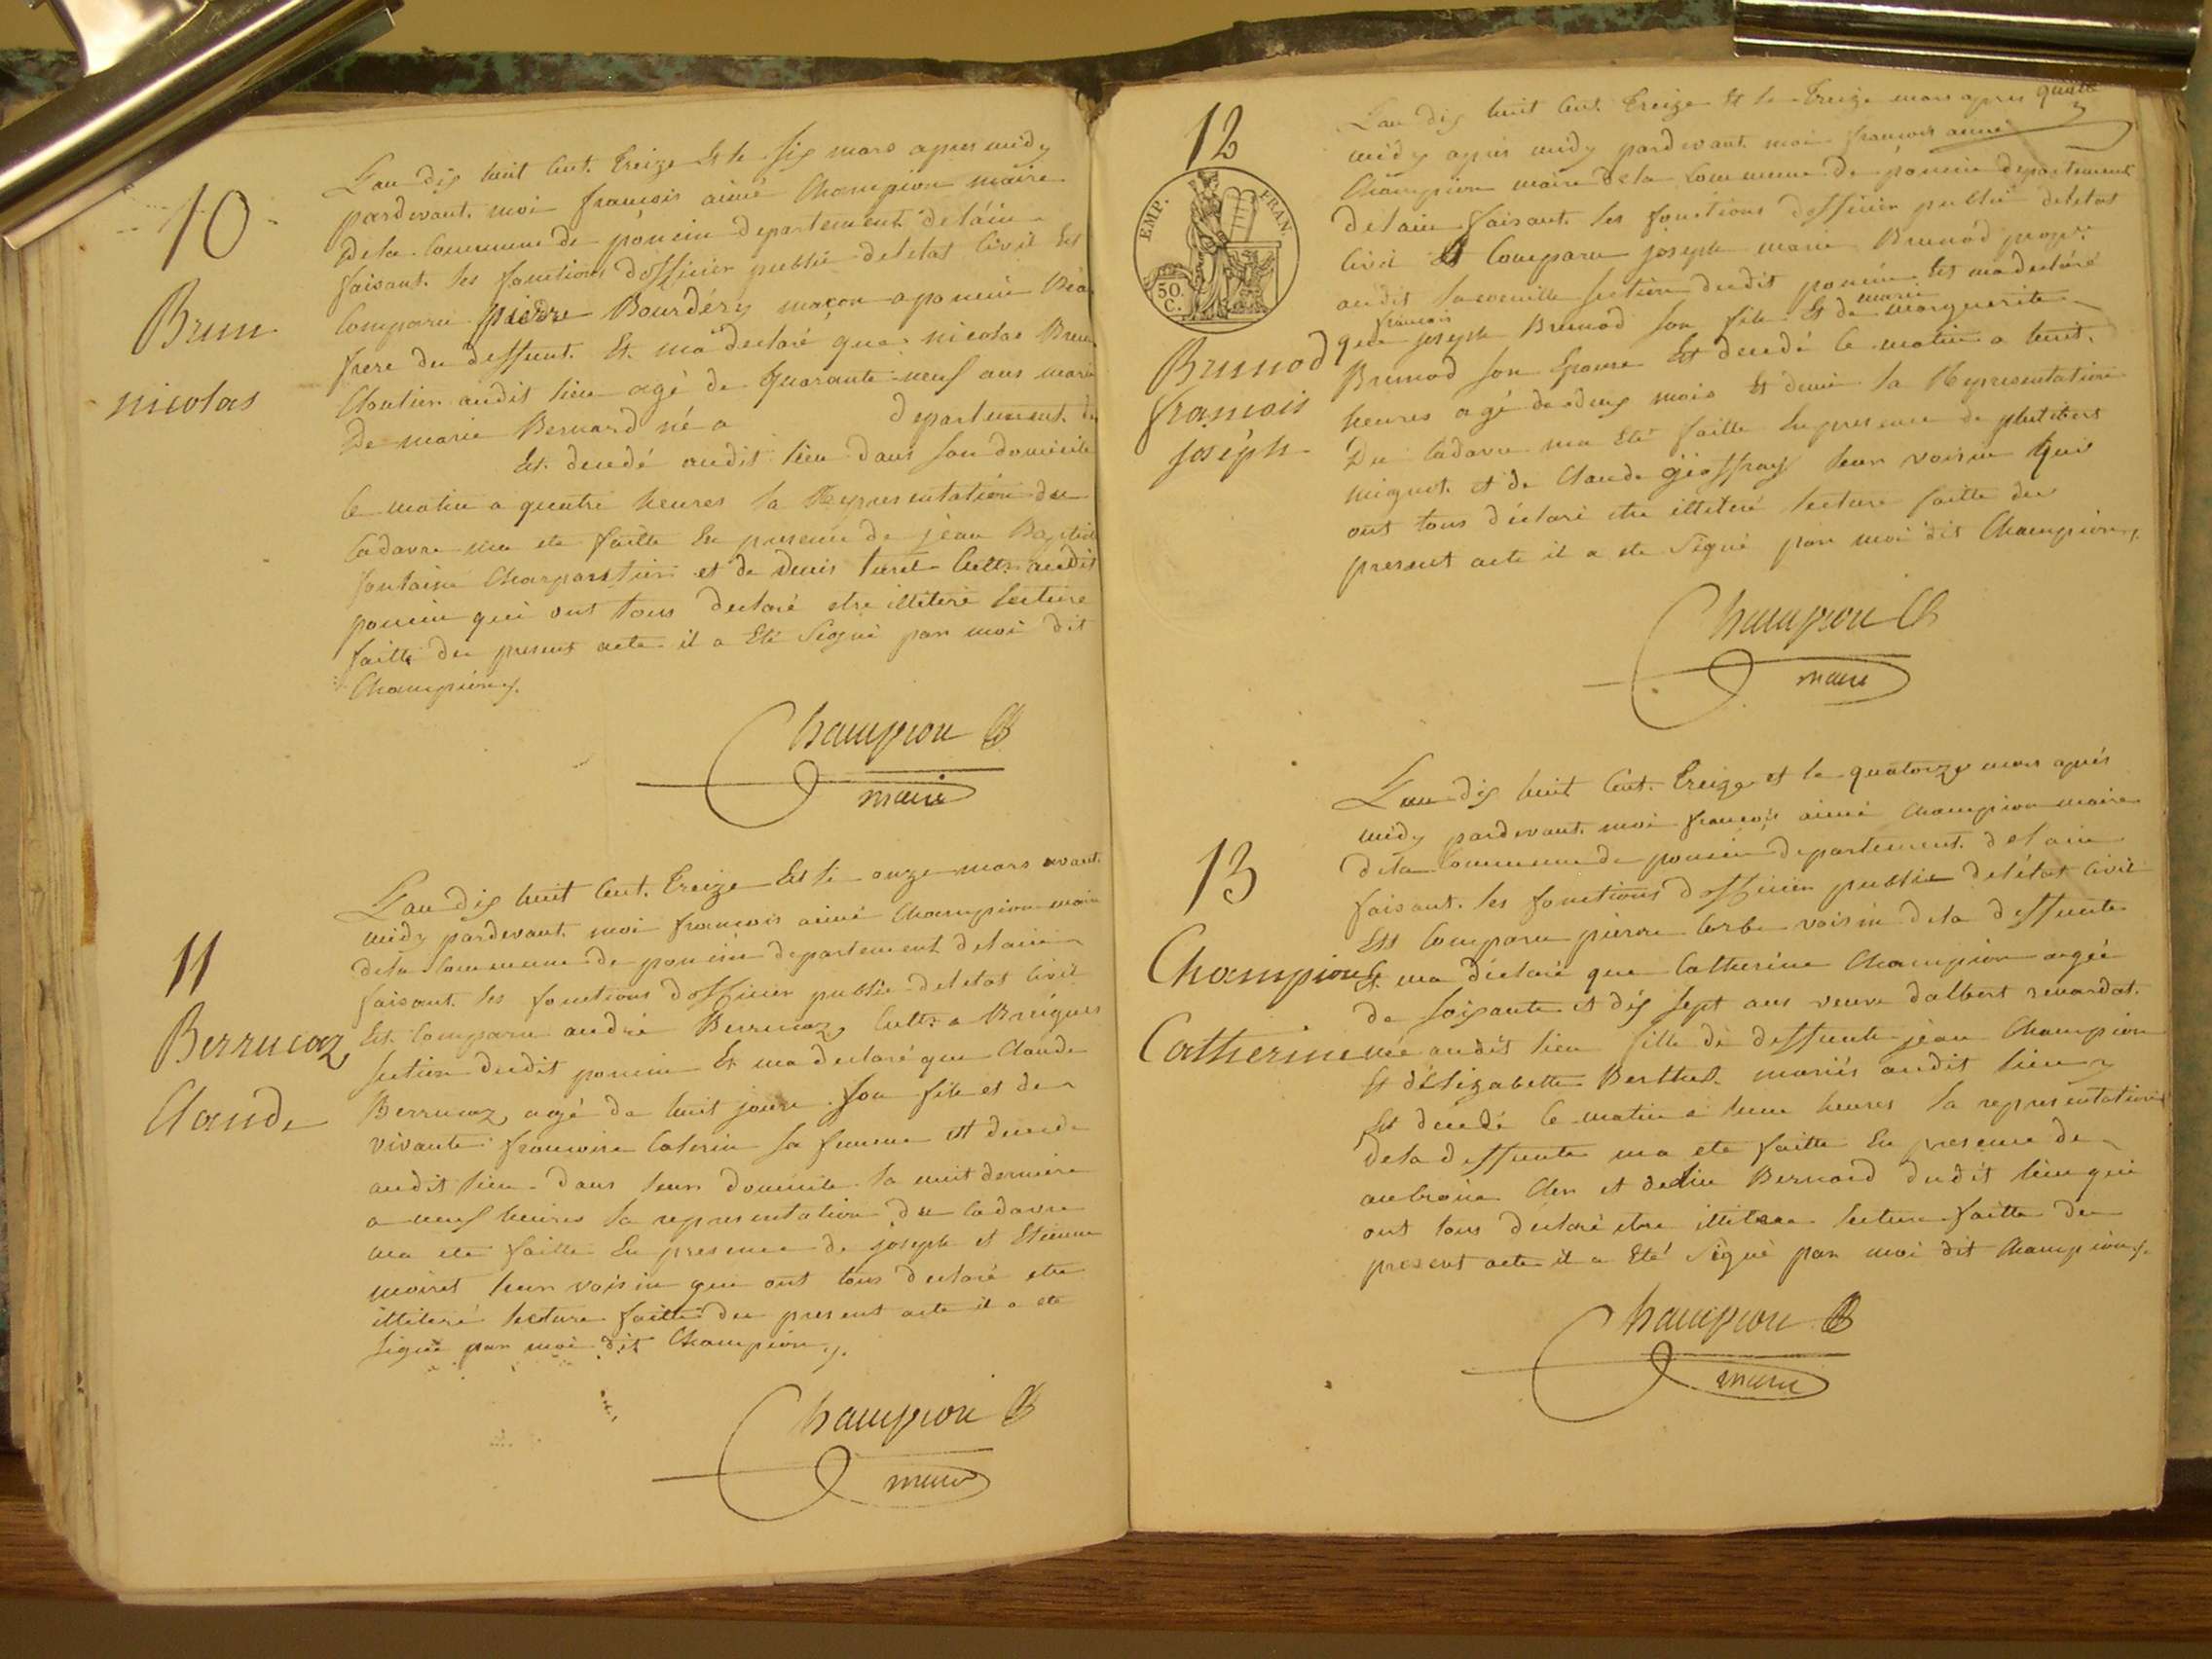 10
Brun
nicolas
L'an dix huit Cent Treize Et le six mars apres midy
pardevant moi françois aimé Champion maire
de la Commune de poncin departement de l'ain
faisant les fonctions d'officier public de letat Civil Est
Comparu pierre Bourdéry maçon a poncin
frere du deffunt Et ma declaré que nicolas Brun
Cloutier audit lieu agé de quarante neuf ans mari
De marie Bernard né a departement de
Est decedé audit lieu dans son domicile
Ce matin a quatre heures la Representation du
Cadavre ma ete faitte En presence de jean Baptiste
fontaine Charpantier et de denis turel Cultr audit
poncin qui ont tous declaré etre illiteré lecture
faitte du present acte il a Eté Signé par moi dit
Champion
Champion
maire
11
Berrucaz
Claude
L'an dix huit Cent Treize Est le onze mars avant
midy pardevant moi françois aimé Champion maire
de la Commune de poncin departement de lain
faisant les fonctions d'officier public de letat Civil
Est Comparu andré Berrucaz Cultr a Breignes
section dudit poncin Et ma declaré que Claude
Berrucaz agé de huit jours son fils et de
vivante françoise Caterin sa femme est decede
audit lieu dans leur domicile la nuit derniere
a neuf heures la representation du Cadavre
ma ete faitte En presence de joseph et Etienne
moiret leur voisin qui ont tous declaré etre
illiteré lecture faitte du present acte il a ete
signé par moi dit Champion
Champion
maire
12
EMP. FRAN.
50. C.
Brunod
francois
joseph
L'an dix huit Cent Treize Et le Treize mars apres quatre
midy apres midy pardevant moi françois aimé
Champion maire de la Commune de poncin departement
de lain faisant les fonctions d'officier public de letat
Civil Est Comparu joseph marie Brunod propr
audit section dudit poncin Et ma declaré
françois marie
que joseph Brunod son fils Et de marguerite
Brunod son Epouse Est decedé Ce matin a huit
heures agé de deux mois Et demi la Representation
Du Cadavre ma Eté faitte En presence de philibert
mignot et de Claude geoffray leur voisin qui
ont tous déclaré etre illiteré lecture faitte du
present acte il a ete Signé par moi dit Champion
Champion
maire
13
Champion
Catherine
L'an dix huit Cent Treize et le quatorze mars aprés
midy pardevant moi françois aimé Champion maire
de la Commune de poncin departement de l ain
faisant les fonctions d'officier public de l'état Civil
Est Comparu pierre Corbe voisin de la deffunte
Et ma déclaré que Catherine Champion agée
de soixante et dix sept ans veuve dalbert renardat
née audit lieu fille de deffunte jean Champion
Et d'Elizabette Berthet mariés audit lieu
Est decédé Ce matin a heures la representation
de la deffunte ma ete faitte En presence de
ambroise Clen et Bernard dudit lieu qui
ont tous declaré etre illiteree lecture faitte du
present acte il a Eté Signé par moi dit Champion
Champion
maire